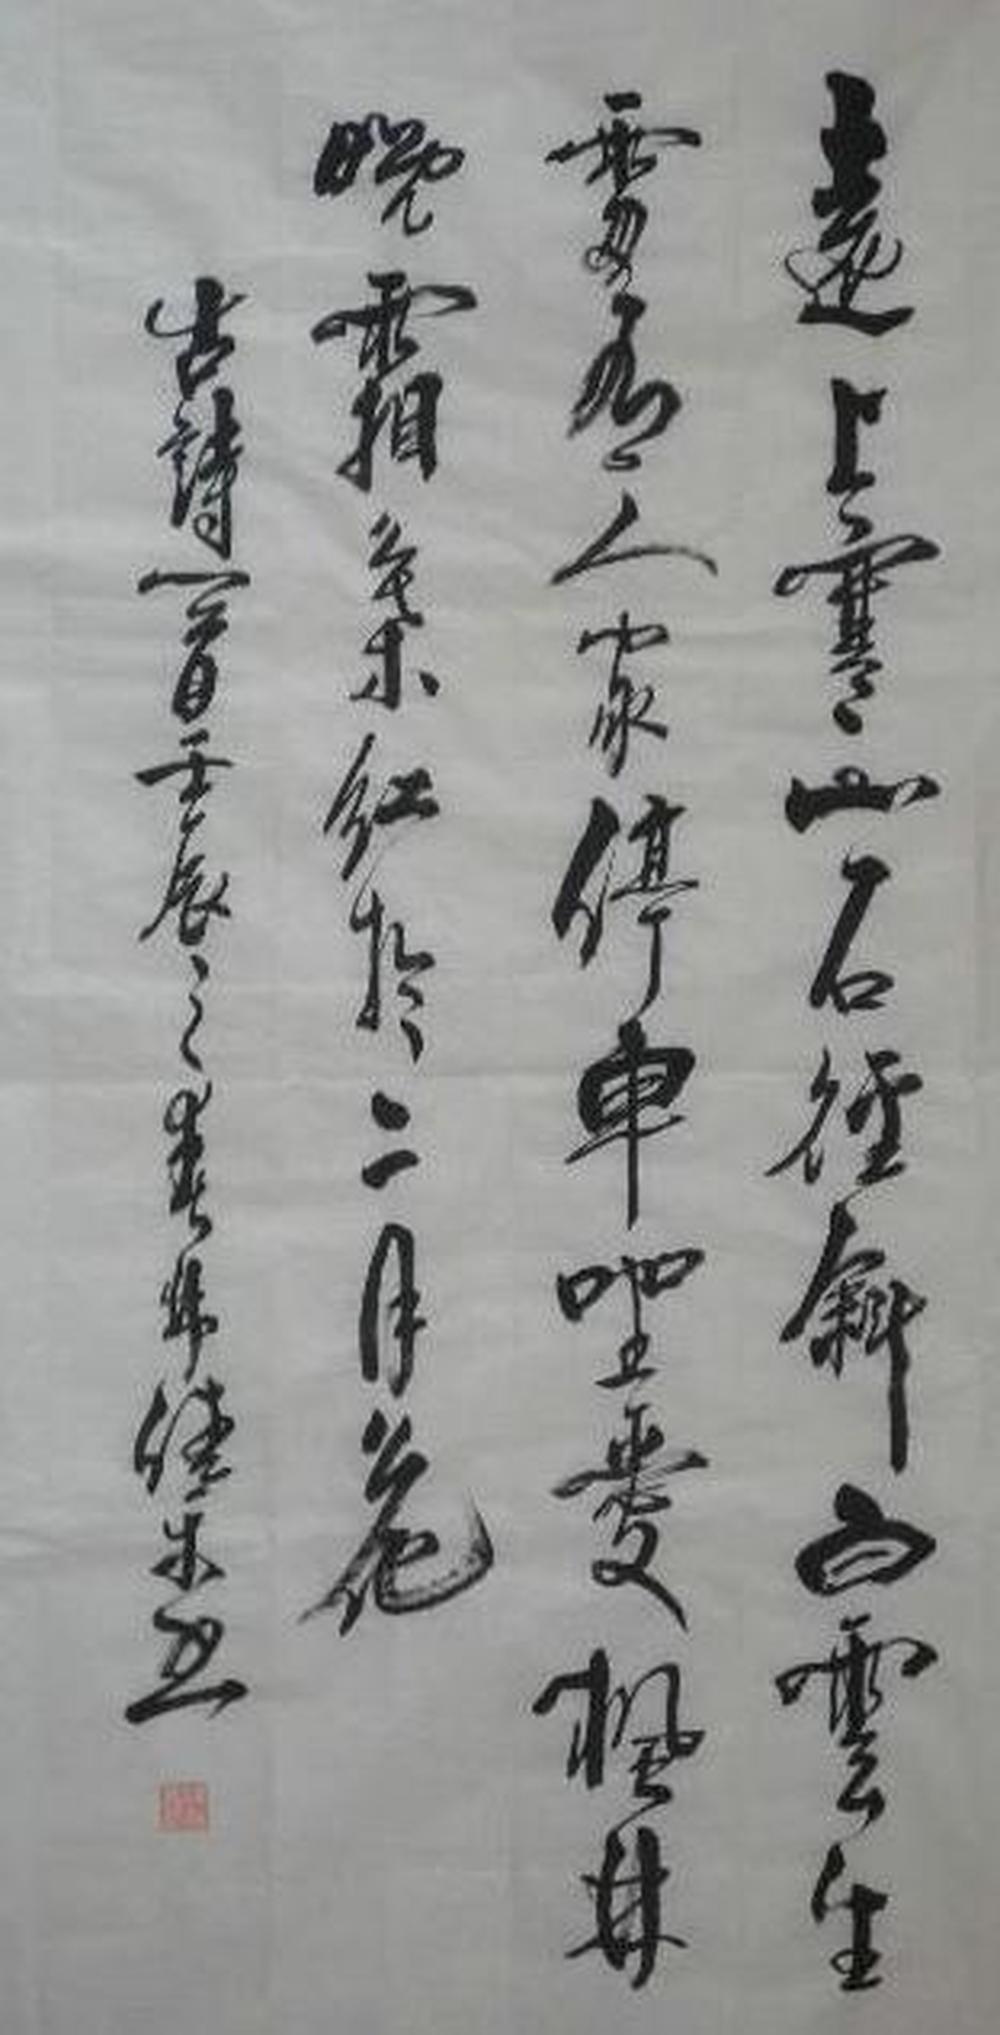 遠上寒山石徑斜白雲生
處有人家停車坐愛楓林
晚霜葉紅於二月花
古詩一首壬辰之春書